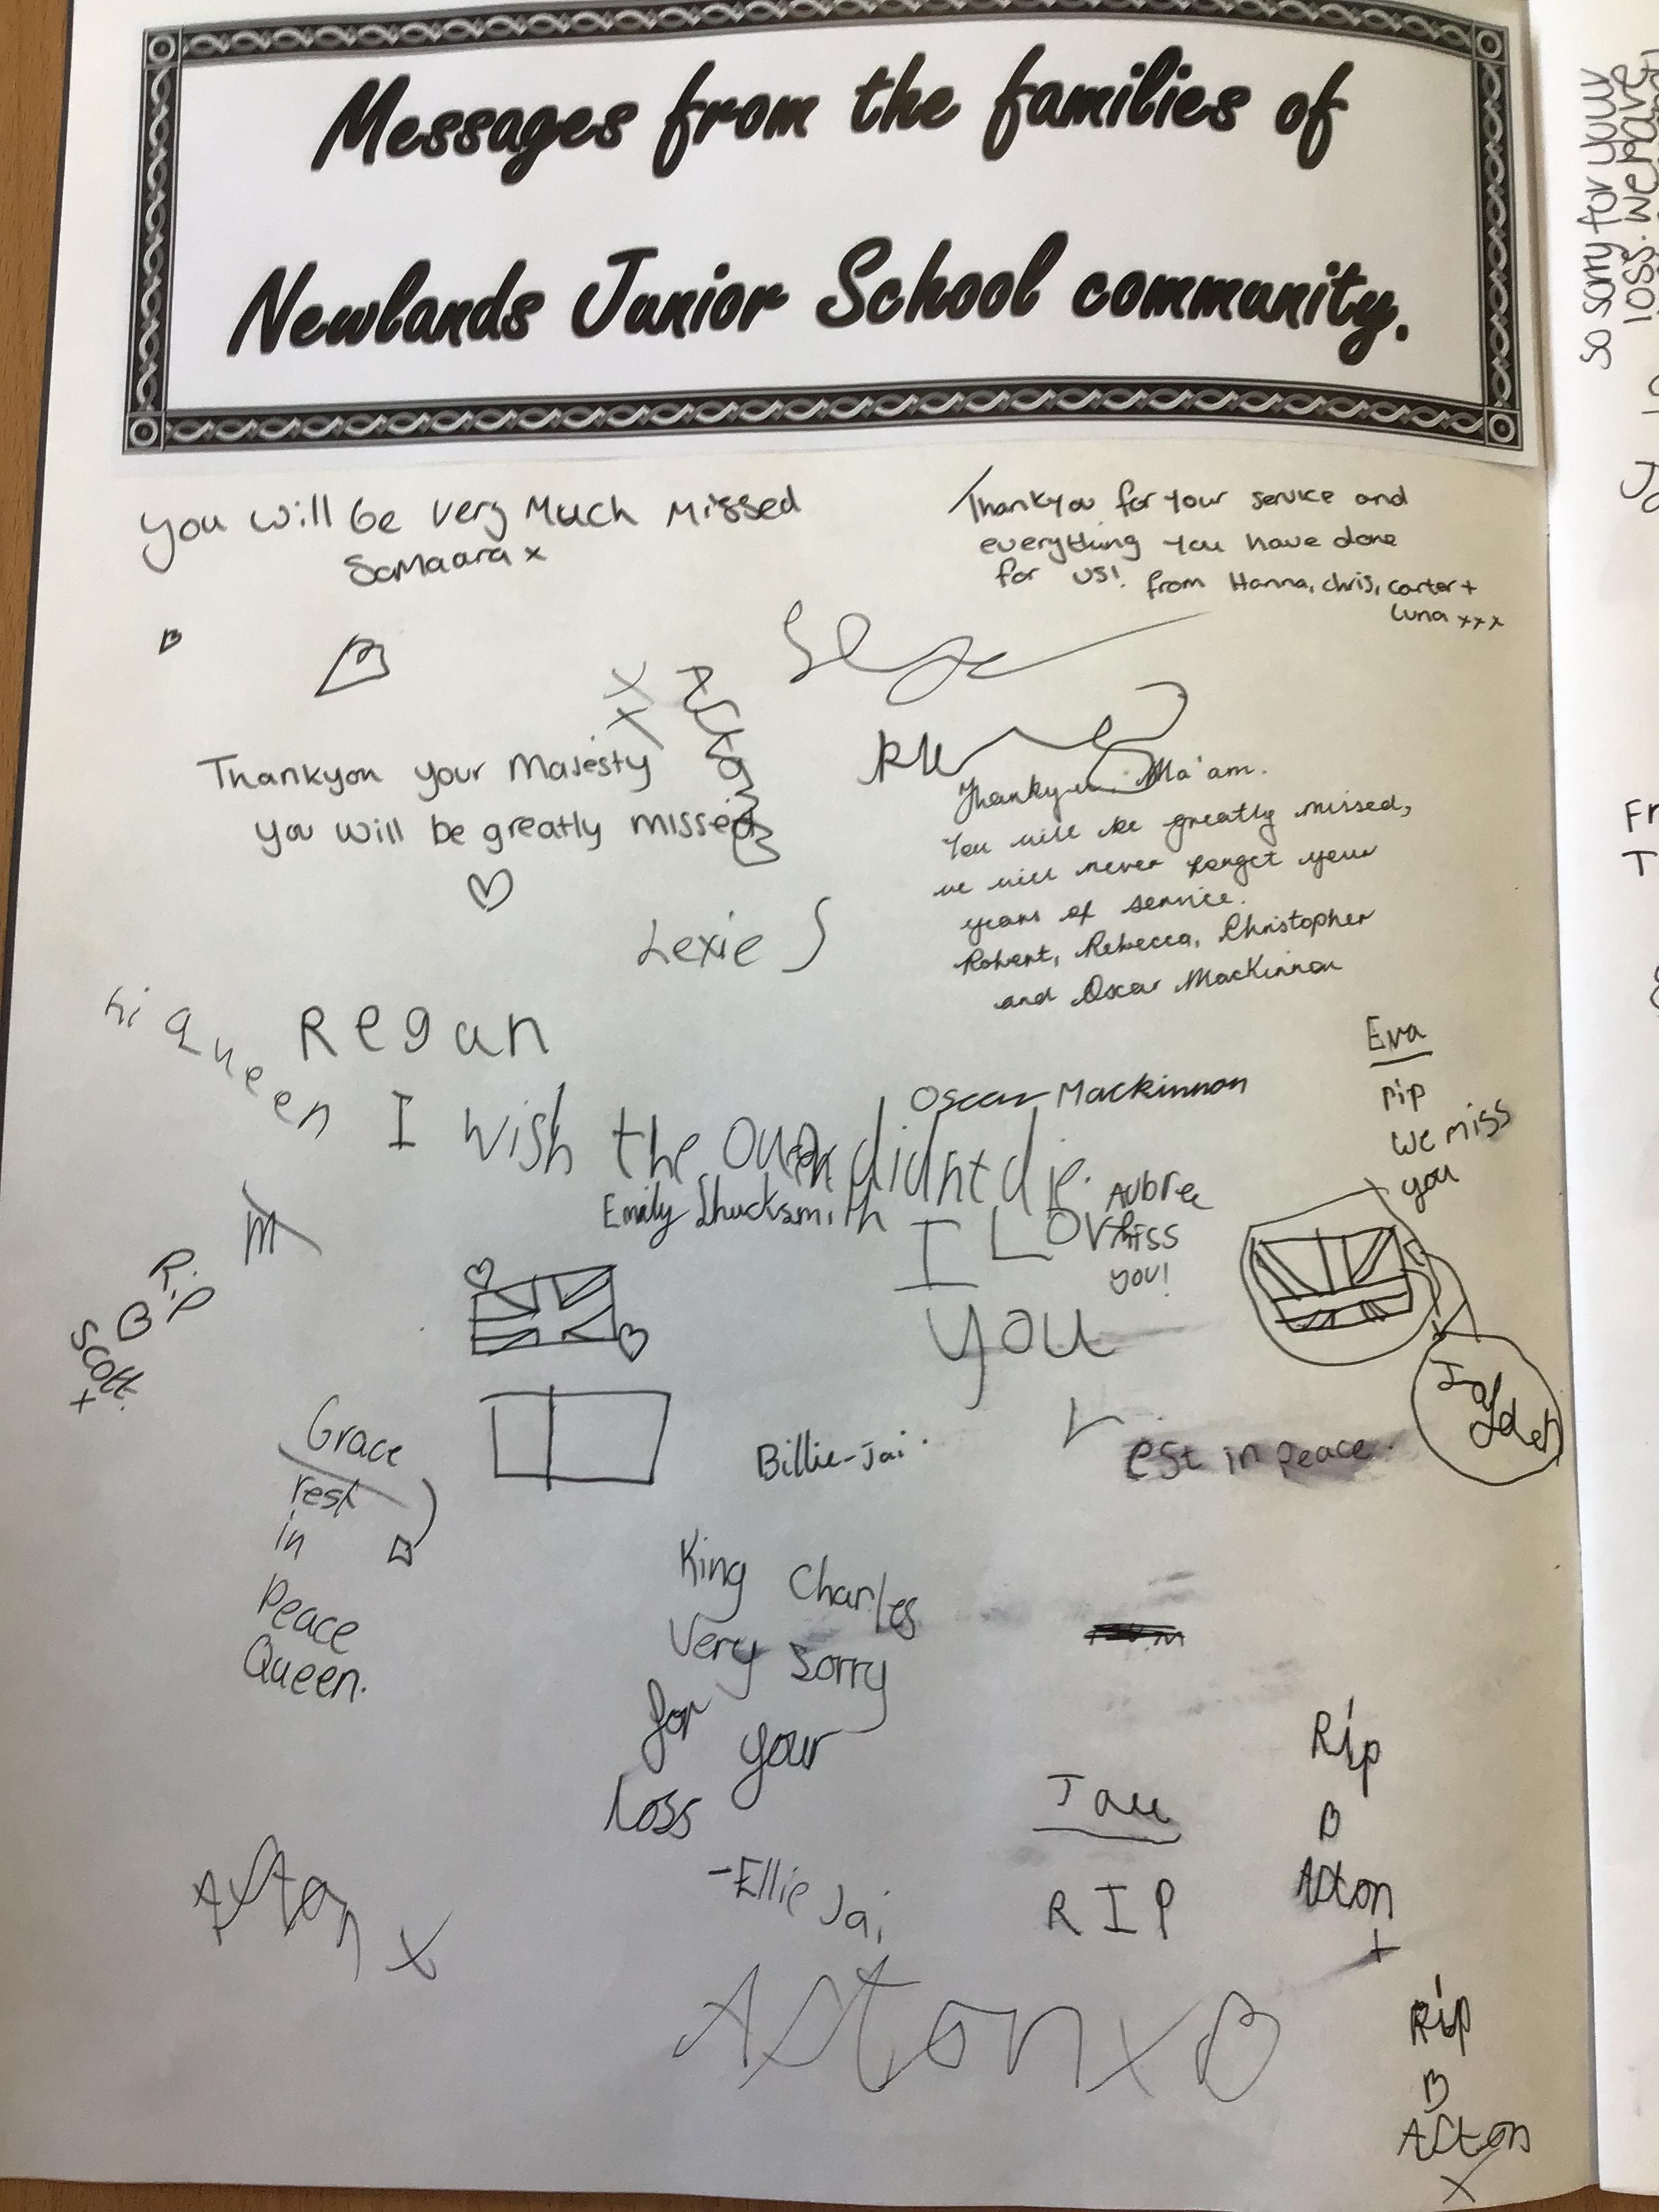 Messages from the families of
Newlands Junior School community.
you will be very Much Missed
Samaara x
Thankyou for your service and
everything you have done
for us! from Hanna, chris, carter +
Luna xxx
Thankyou your Majesty
you will be greatly missed
Thankyou Ma'am.
You will be greatly missed,
we will never forget your
years of service.
Robert, Rebecca, Christopher
and Oscar MacKinnon
Lexie S
hi Queen
Regan
I wish the Queen didnt die.
Oscar Mackinnon
Eva
rip
we miss
you
Emily Shucksmith
Aubree
Miss
you!
I Love
you
R.iP
Scott.
x
Jayden
Grace
rest
in
Peace
Queen.
Billie-Jai.
rest in peace.
King Charles
Very sorry
for your
loss
-Ellie Jai
R I P
Rip
Aston
x
Aston x
Aston x
Rip
Aston
x
so sorry for your
loss. we have
Fr
T